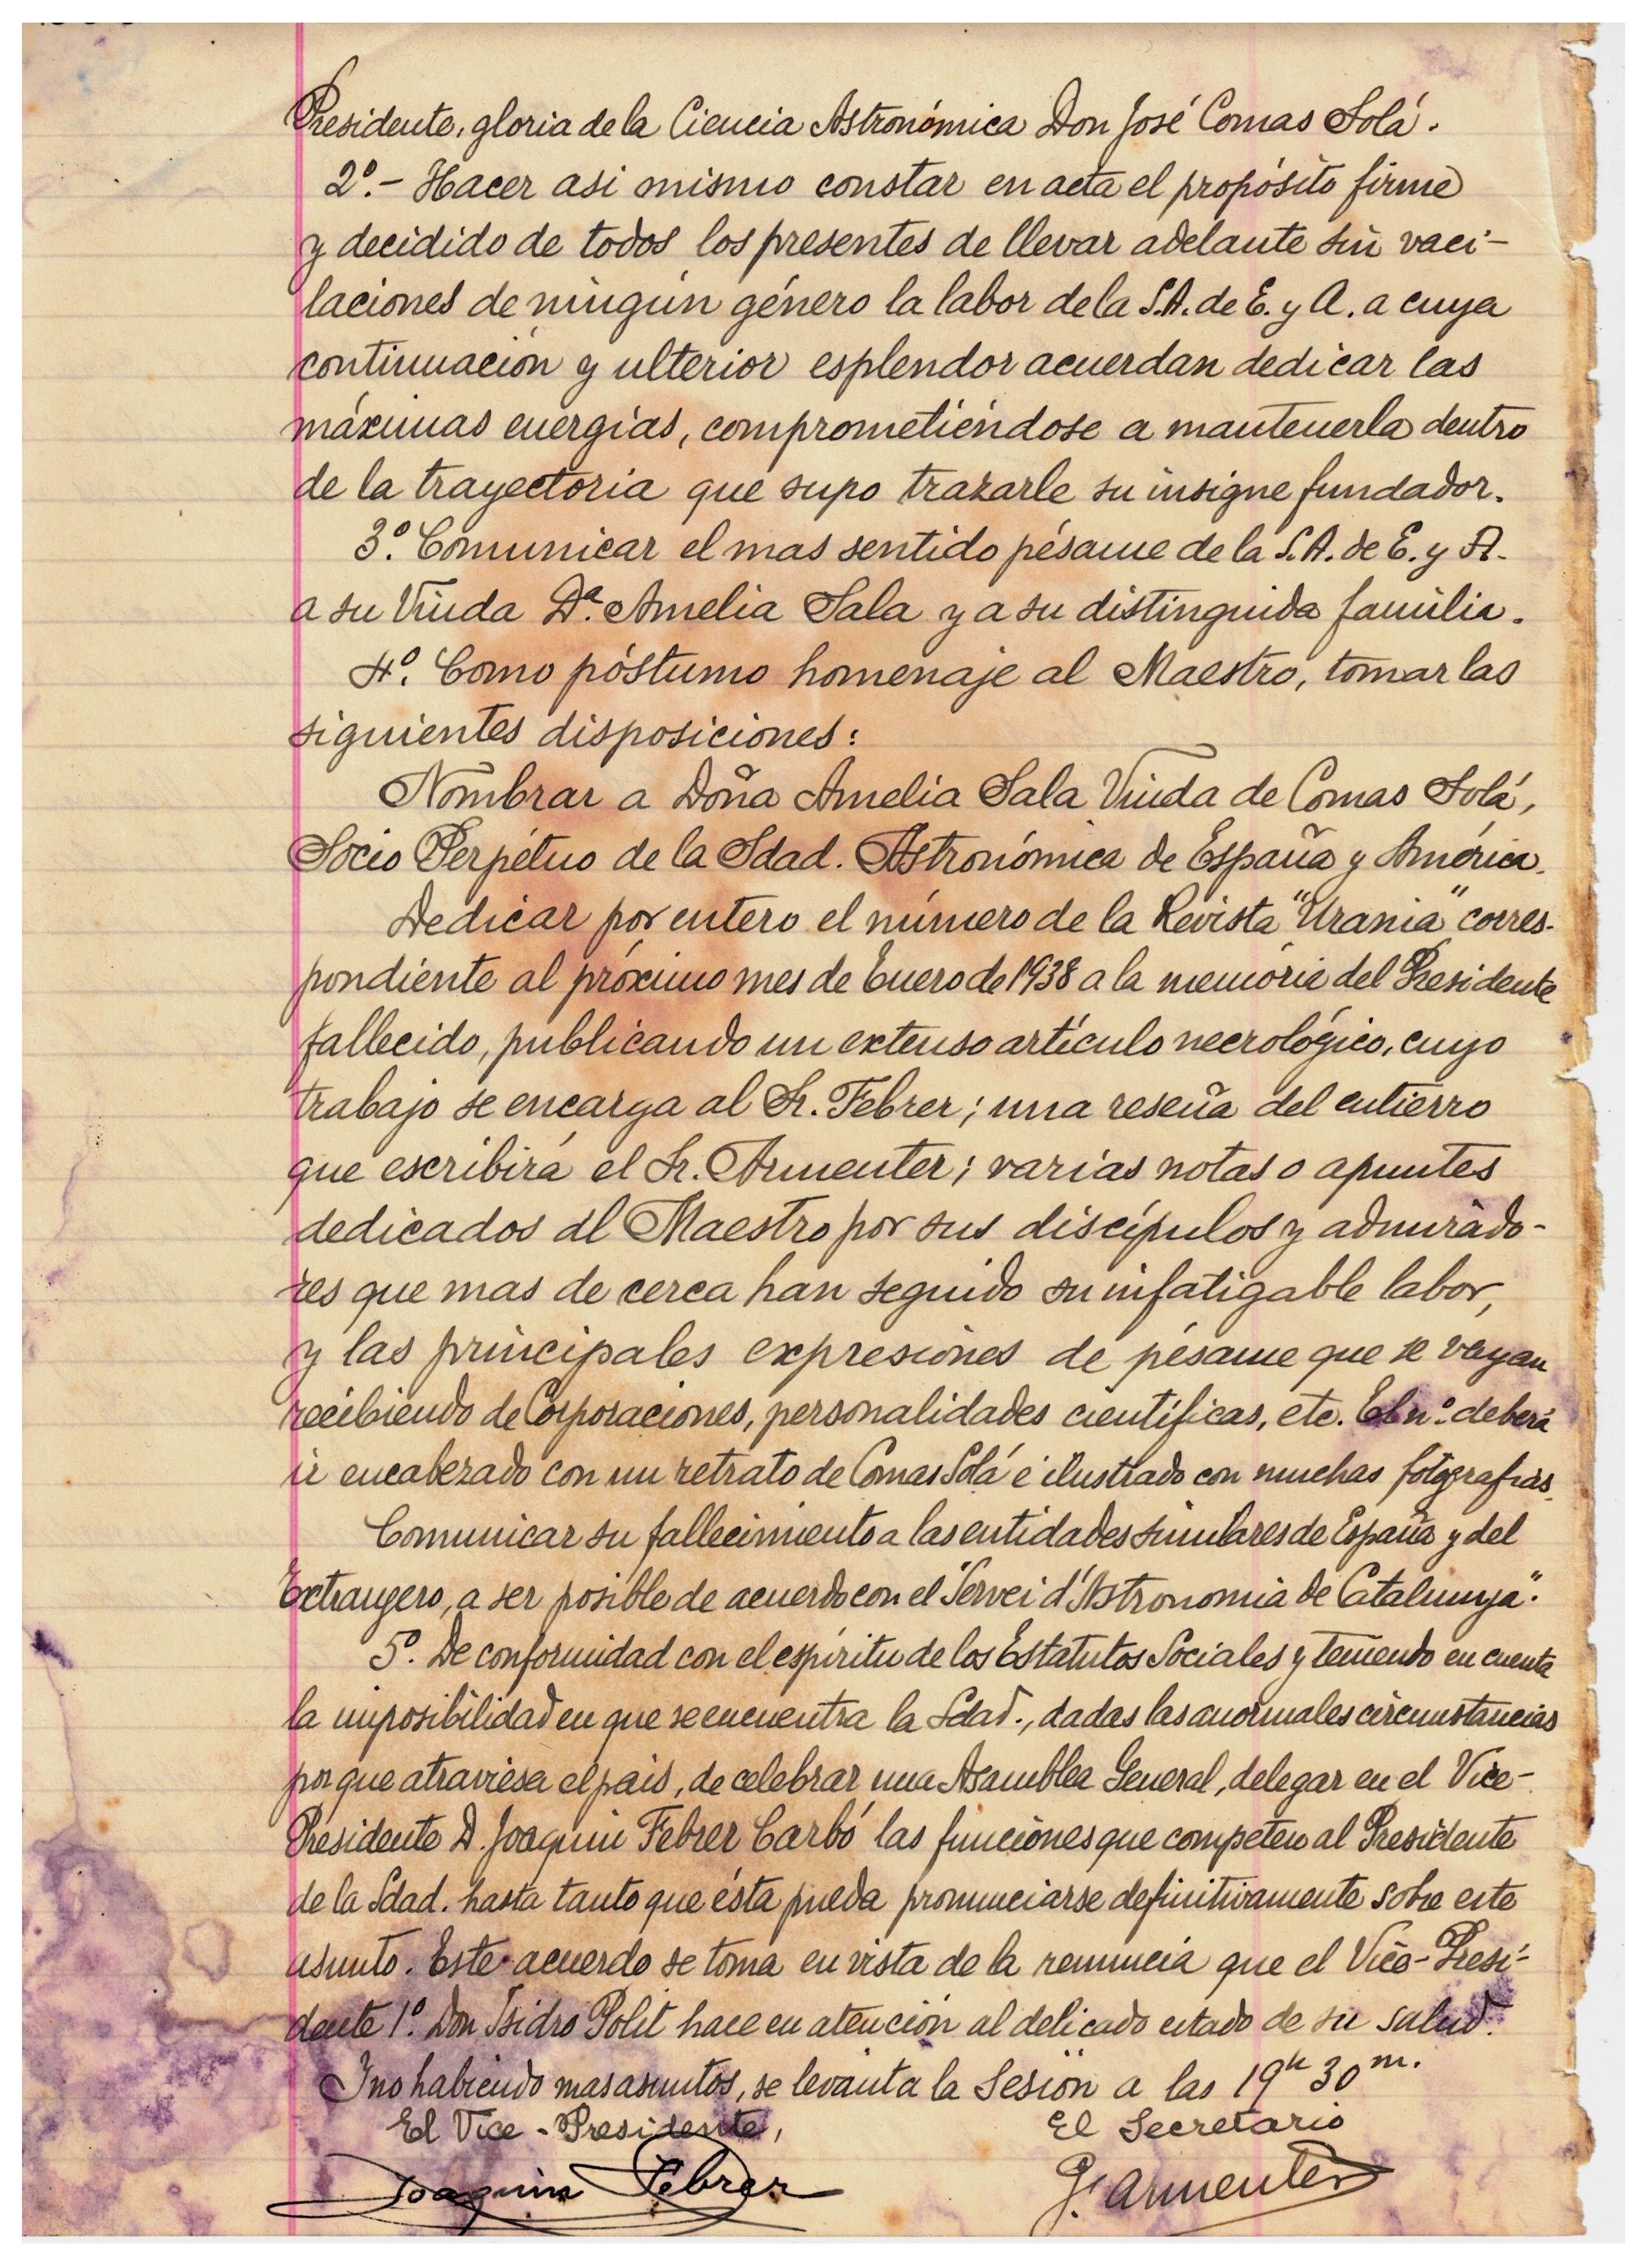 Presidente, gloria de la Ciencia Astronómica Don José Comas Solá.
2º.- Hacer asi mismo constar en acta el propósito firme
y decidido de todos los presentes de llevar adelante sin vaci-
laciones de ningún género la labor de la S.A. de E. y A. a cuya
continuación y ulterior esplendor acuerdan dedicar las
máximas energías, comprometiéndose a mantenerla dentro
de la trayectoria que supo trazarle su insigne fundador.
3º. Comunicar el mas sentido pésame de la S.A. de E. y A.
a su Viuda Dª. Amelia Sala y a su distinguida familia.
4º. Como póstumo homenaje al Maestro, tomar las
siguientes disposiciones:
Nombrar a Doña Amelia Sala Viuda de Comas Solá,
Socio Perpétuo de la Sdad. Astronómica de España y América.
Dedicar por entero el número de la Revista "Urania" corres-
pondiente al próximo mes de Enero de 1938 a la memoria del Presidente
fallecido, publicando un extenso artículo necrológico, cuyo
trabajo se encarga al Sr. Febrer; una reseña del entierro
que escribirá el Sr. Armenter; varias notas o apuntes
dedicados al Maestro por sus discípulos y admirado-
res que mas de cerca han seguido su infatigable labor,
y las principales expresiones de pésame que se vayan
recibiendo de Corporaciones, personalidades científicas, etc. El nº. deberá
ir encabezado con un retrato de Comas Solá e ilustrado con muchas fotografías.
Comunicar su fallecimiento a las entidades similares de España y del
Extrangero, a ser posible de acuerdo con el "Servei d'Astronomia de Catalunya".
5º. De conformidad con el espíritu de los Estatutos Sociales y teniendo en cuenta
la imposibilidad en que se encuentra la Sdad., dadas las anormales circunstancias
por que atraviesa el pais, de celebrar una Asamblea General, delegar en el Vice-
Presidente D. Joaquin Febrer Carbó las funciones que competen al Presidente
de la Sdad. hasta tanto que ésta pueda pronunciarse definitivamente sobre este
asunto. Este acuerdo se toma en vista de la renuncia que el Vice-Presi-
dente 1º. Don Isidro Polit hace en atención al delicado estado de su salud.
Y no habiendo mas asuntos, se levanta la Sesión a las 19h 30m.
El Vice-Presidente,
El Secretario
Joaquin Febrer
F. Armenter